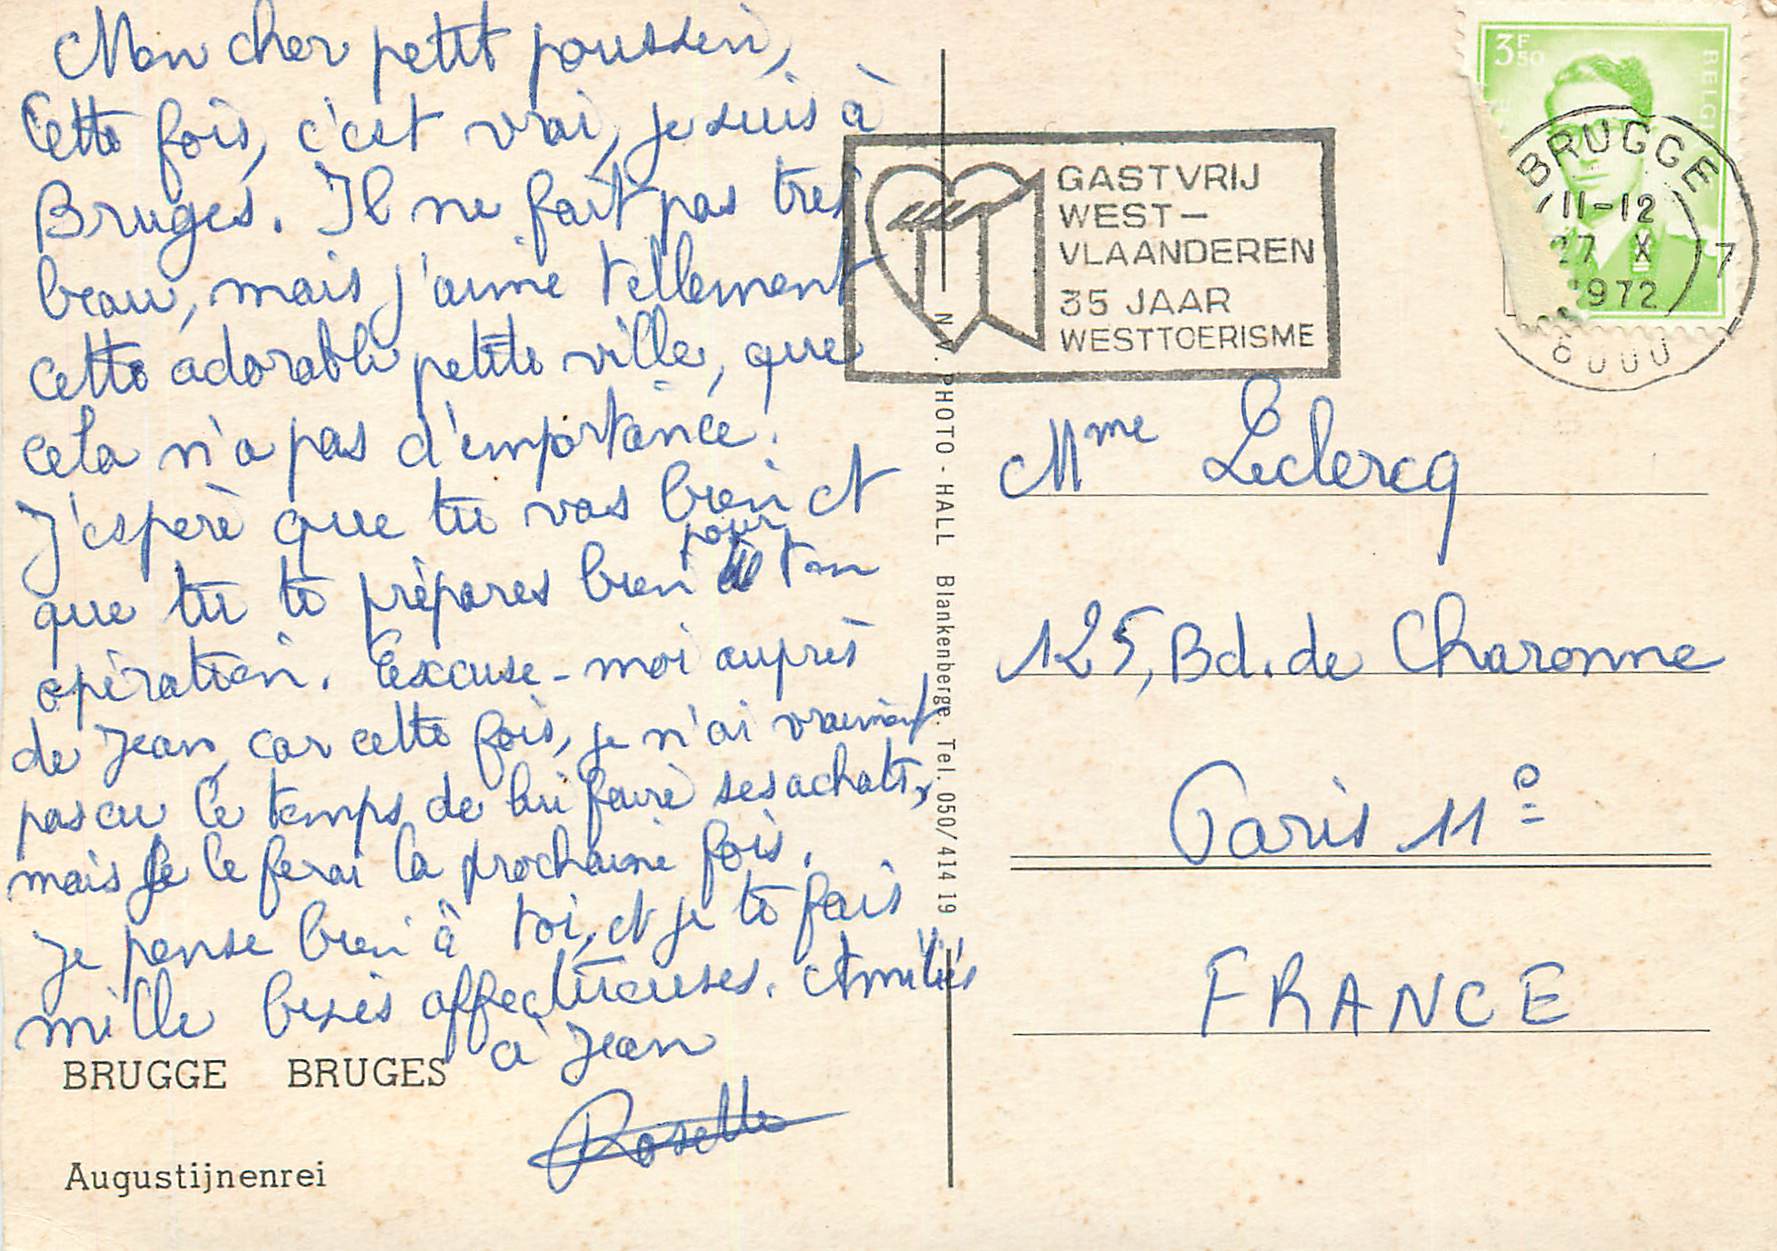 Mon cher petit poussin,
Cette fois, c'est vrai, je suis à
Bruges. Il ne fait pas très
beau, mais j'aime tellement
cette adorable petite ville, que
cela n'a pas d'importance.
J'espère que tu vas bien et
que tu te prépares bien pour ton
opération. Excuse-moi auprès
de Jean, car cette fois, je n'ai vraiment
pas eu le temps de lui faire ses achats,
mais je le ferai la prochaine fois.
Je pense bien à toi, et je te fais
mille bises affectueuses. Amitiés
à Jean
Rosette
BRUGGE BRUGES
Augustijnenrei
N.V. PHOTO-HALL Blankenberge. Tel. 050/414 19
GASTVRIJ
WEST-
VLAANDEREN
35 JAAR
WESTTOERISME
3F50
BELGI
BRUGGE
11-12
27 X 7
1972
Mme Leclercq
125, Bd. de Charonne
Paris 11e
FRANCE